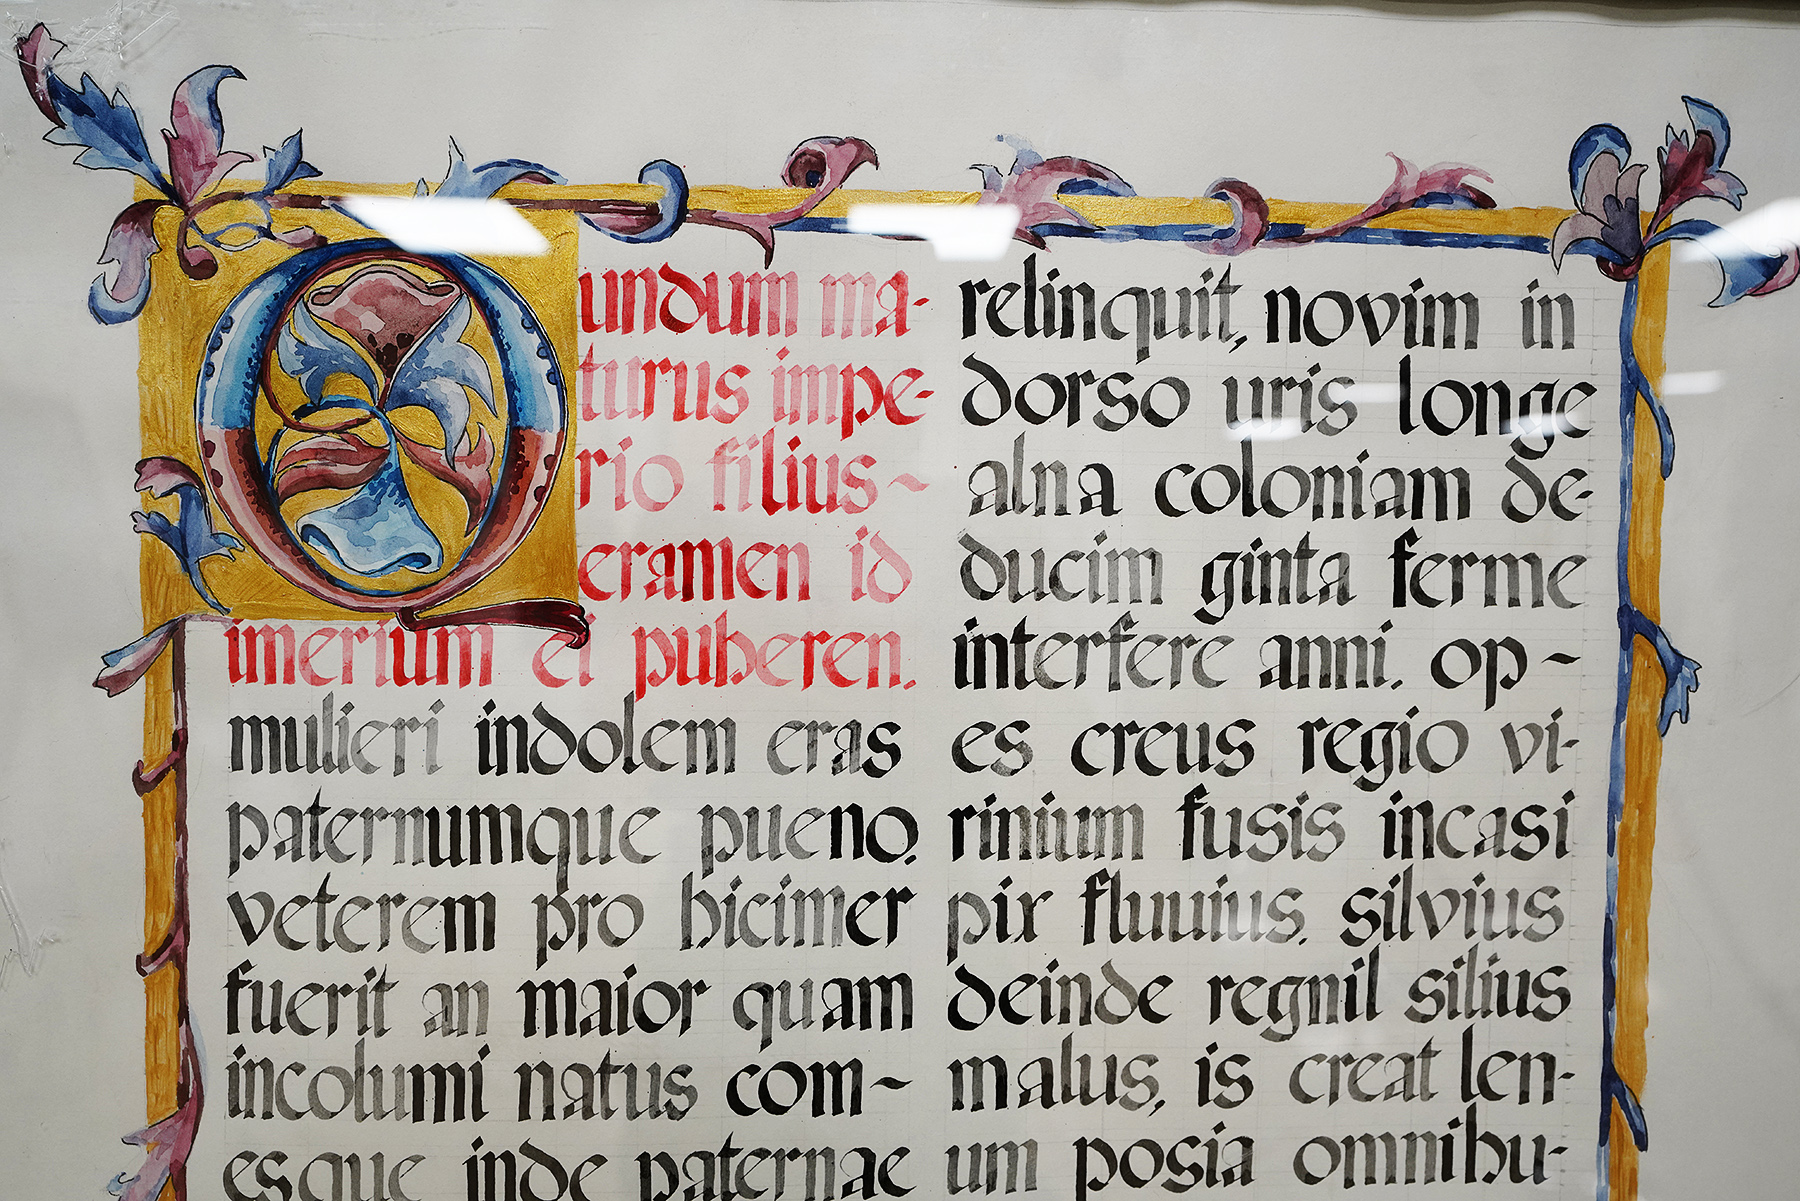 Qundum ma-
turus impe-
rio filius~
eramen id
imerium ei puberen.
mulieri indolem eras
paternumque pueno.
veterem pro hicimer
fuerit an maior quam
incolumi natus com~
esque inde paternae
relinquit, novim in
dorso uris longe
alna coloniam de-
ducim ginta ferme
interfere anni. op~
es creus regio vi-
rinium fusis incasi
pix fluuius. silvius
deinde regnil silius
malus, is creat len-
um posia omnibu-